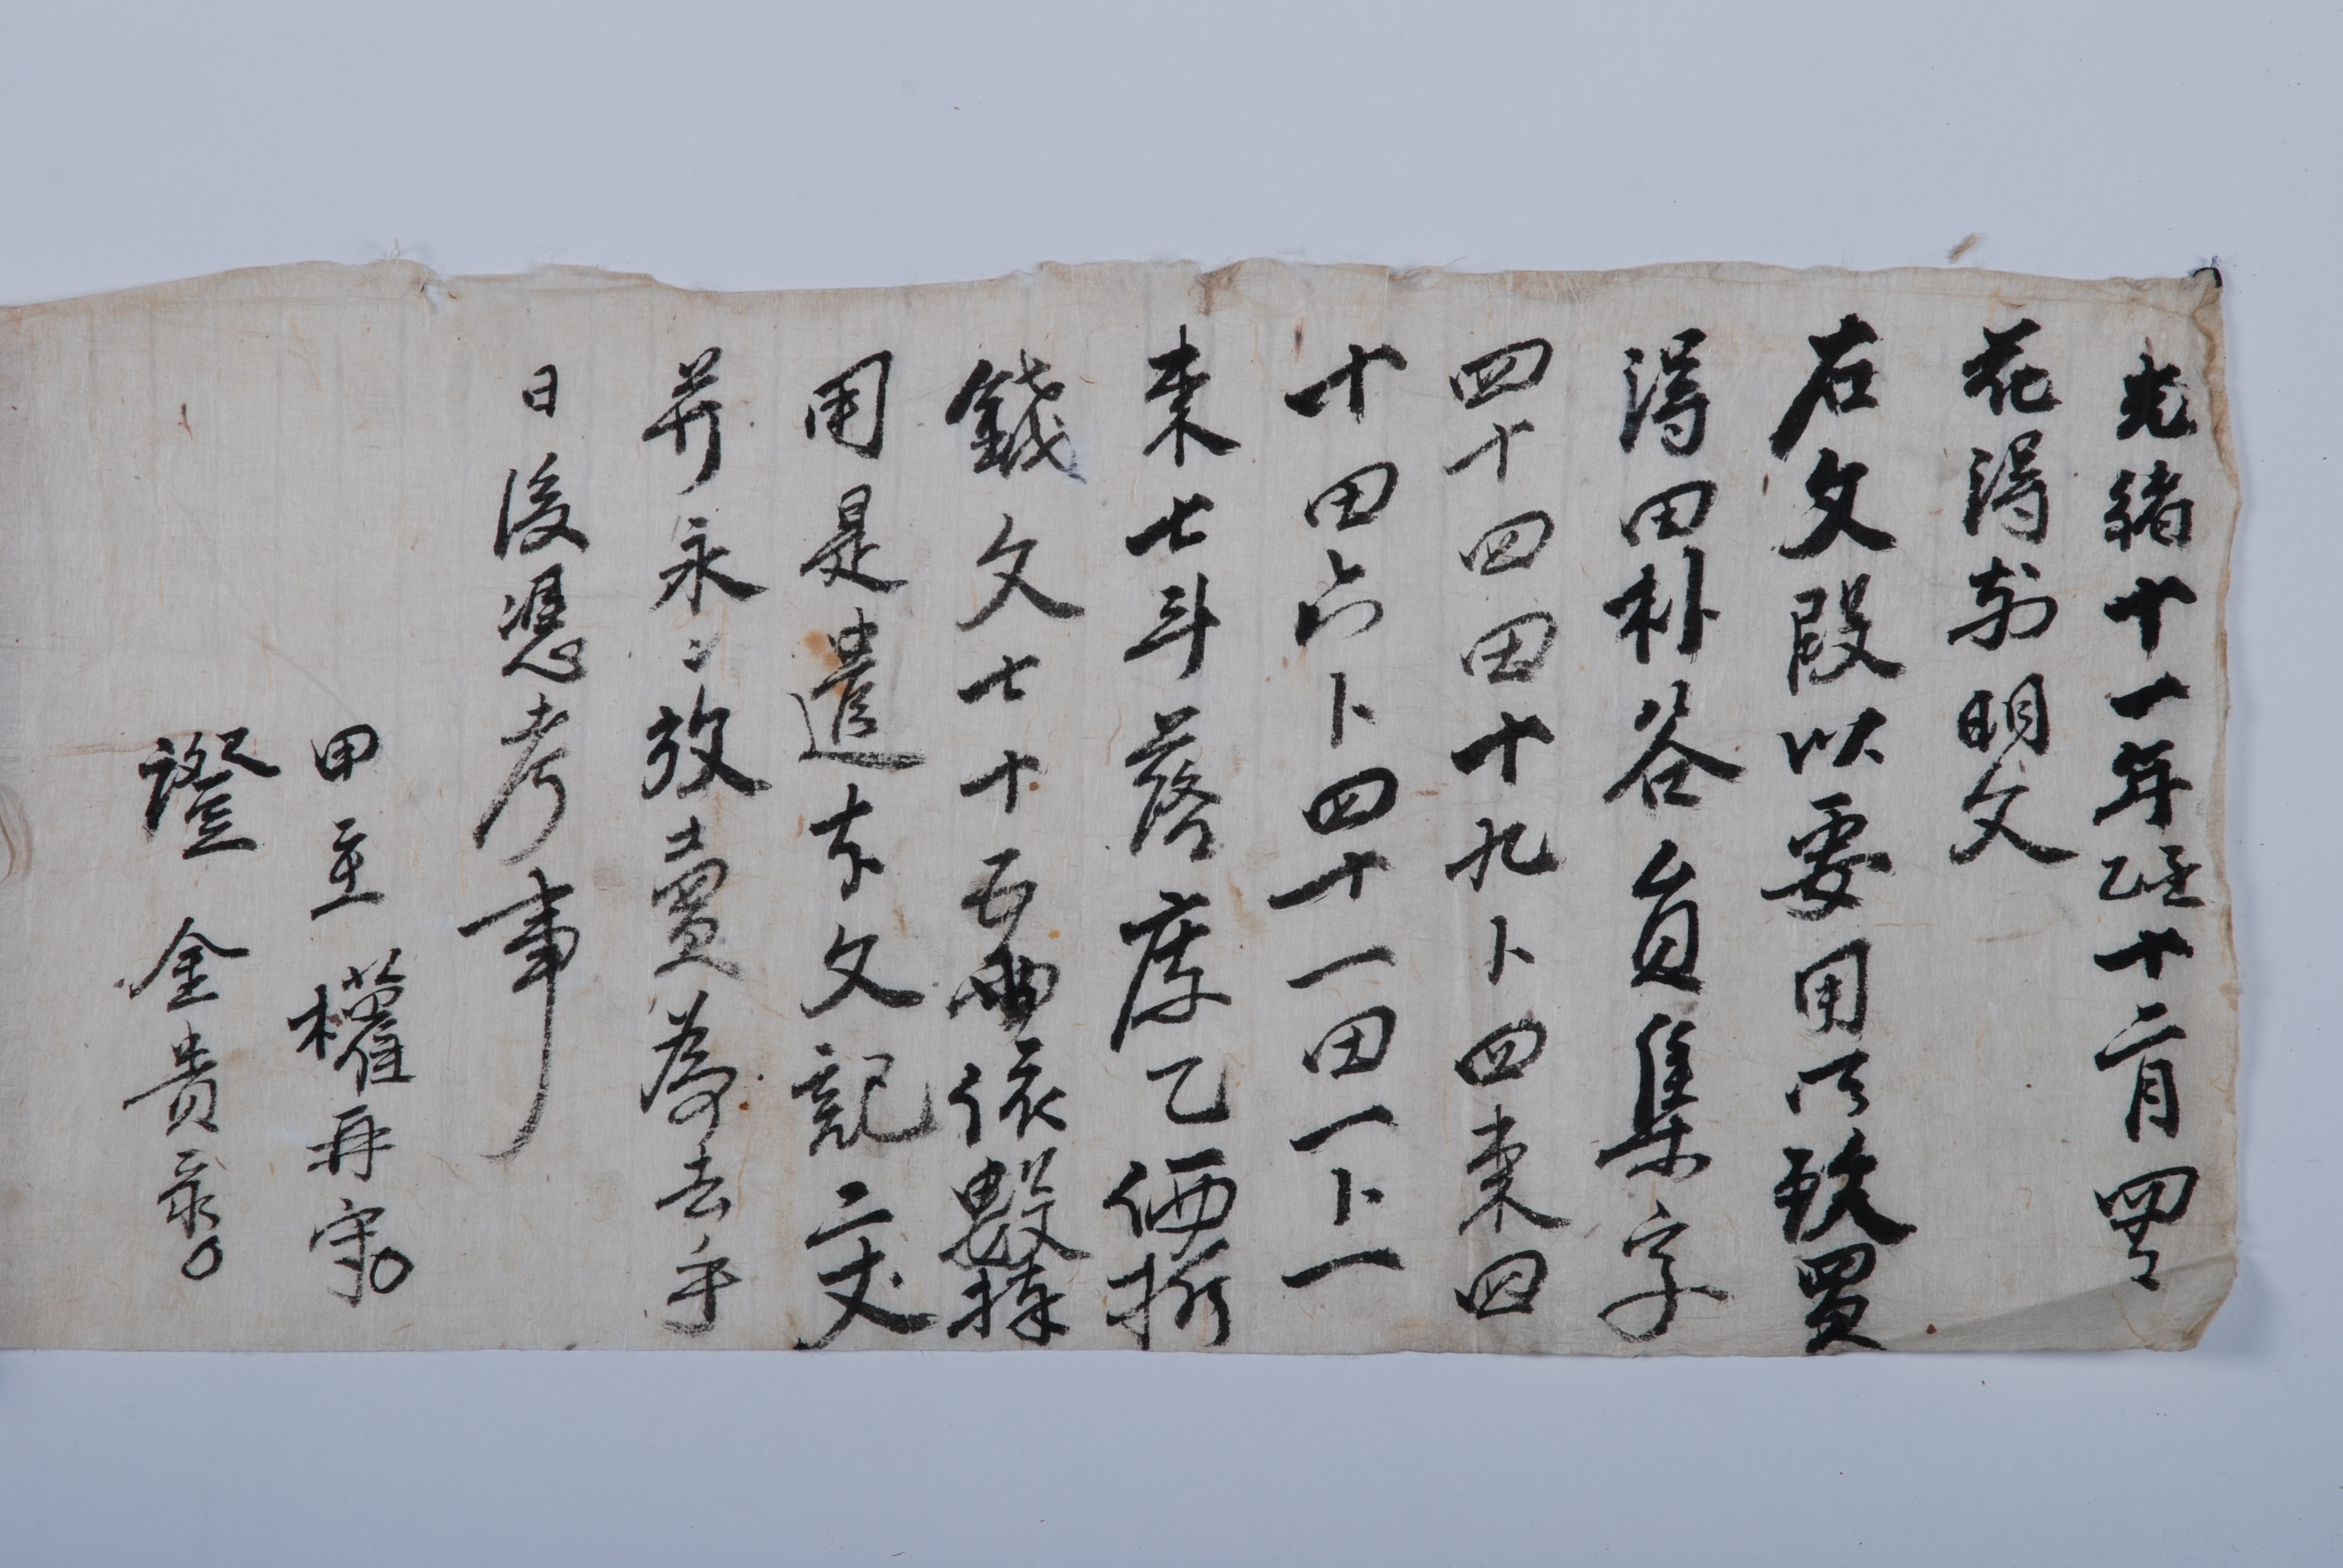 光緒十一年乙酉十二月四日
花得前明文
右文段以要用所致買
得田朴谷員集字
四十四田十九卜四束四
十田六卜四十一田一卜一
束七斗落庫乙価折
錢文七十五兩依數捧
用是遣本文記二丈
幷永〻放賣爲去乎
日後憑考事
田主 權再守
證 金貴彔